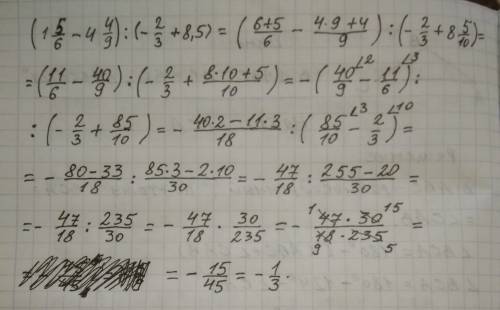 (1 5/6 − 4 4/9) : (−2/3 + 8,5) = ((6+5)/6 − (4·9+4)/9) : (−2/3 + 8 5/10) =
= (11/6 − 40/9) : (−2/3 + (8·10+5)/10) = −(40/9 ⌊2 − 11/6 ⌊3) :
: (−2/3 + 85/10) = − (40·2−11·3)/18 : (85/10 ⌊3 − 2/3 ⌊10) =
= − (80−33)/18 : (85·3−2·10)/30 = − 47/18 : (255−20)/30 =
= − 47/18 : 235/30 = − 47/18 · 30/235 = − (47 1 · 30 15)/(18 9 · 235 5) =
= − 15/45 = − 1/3.